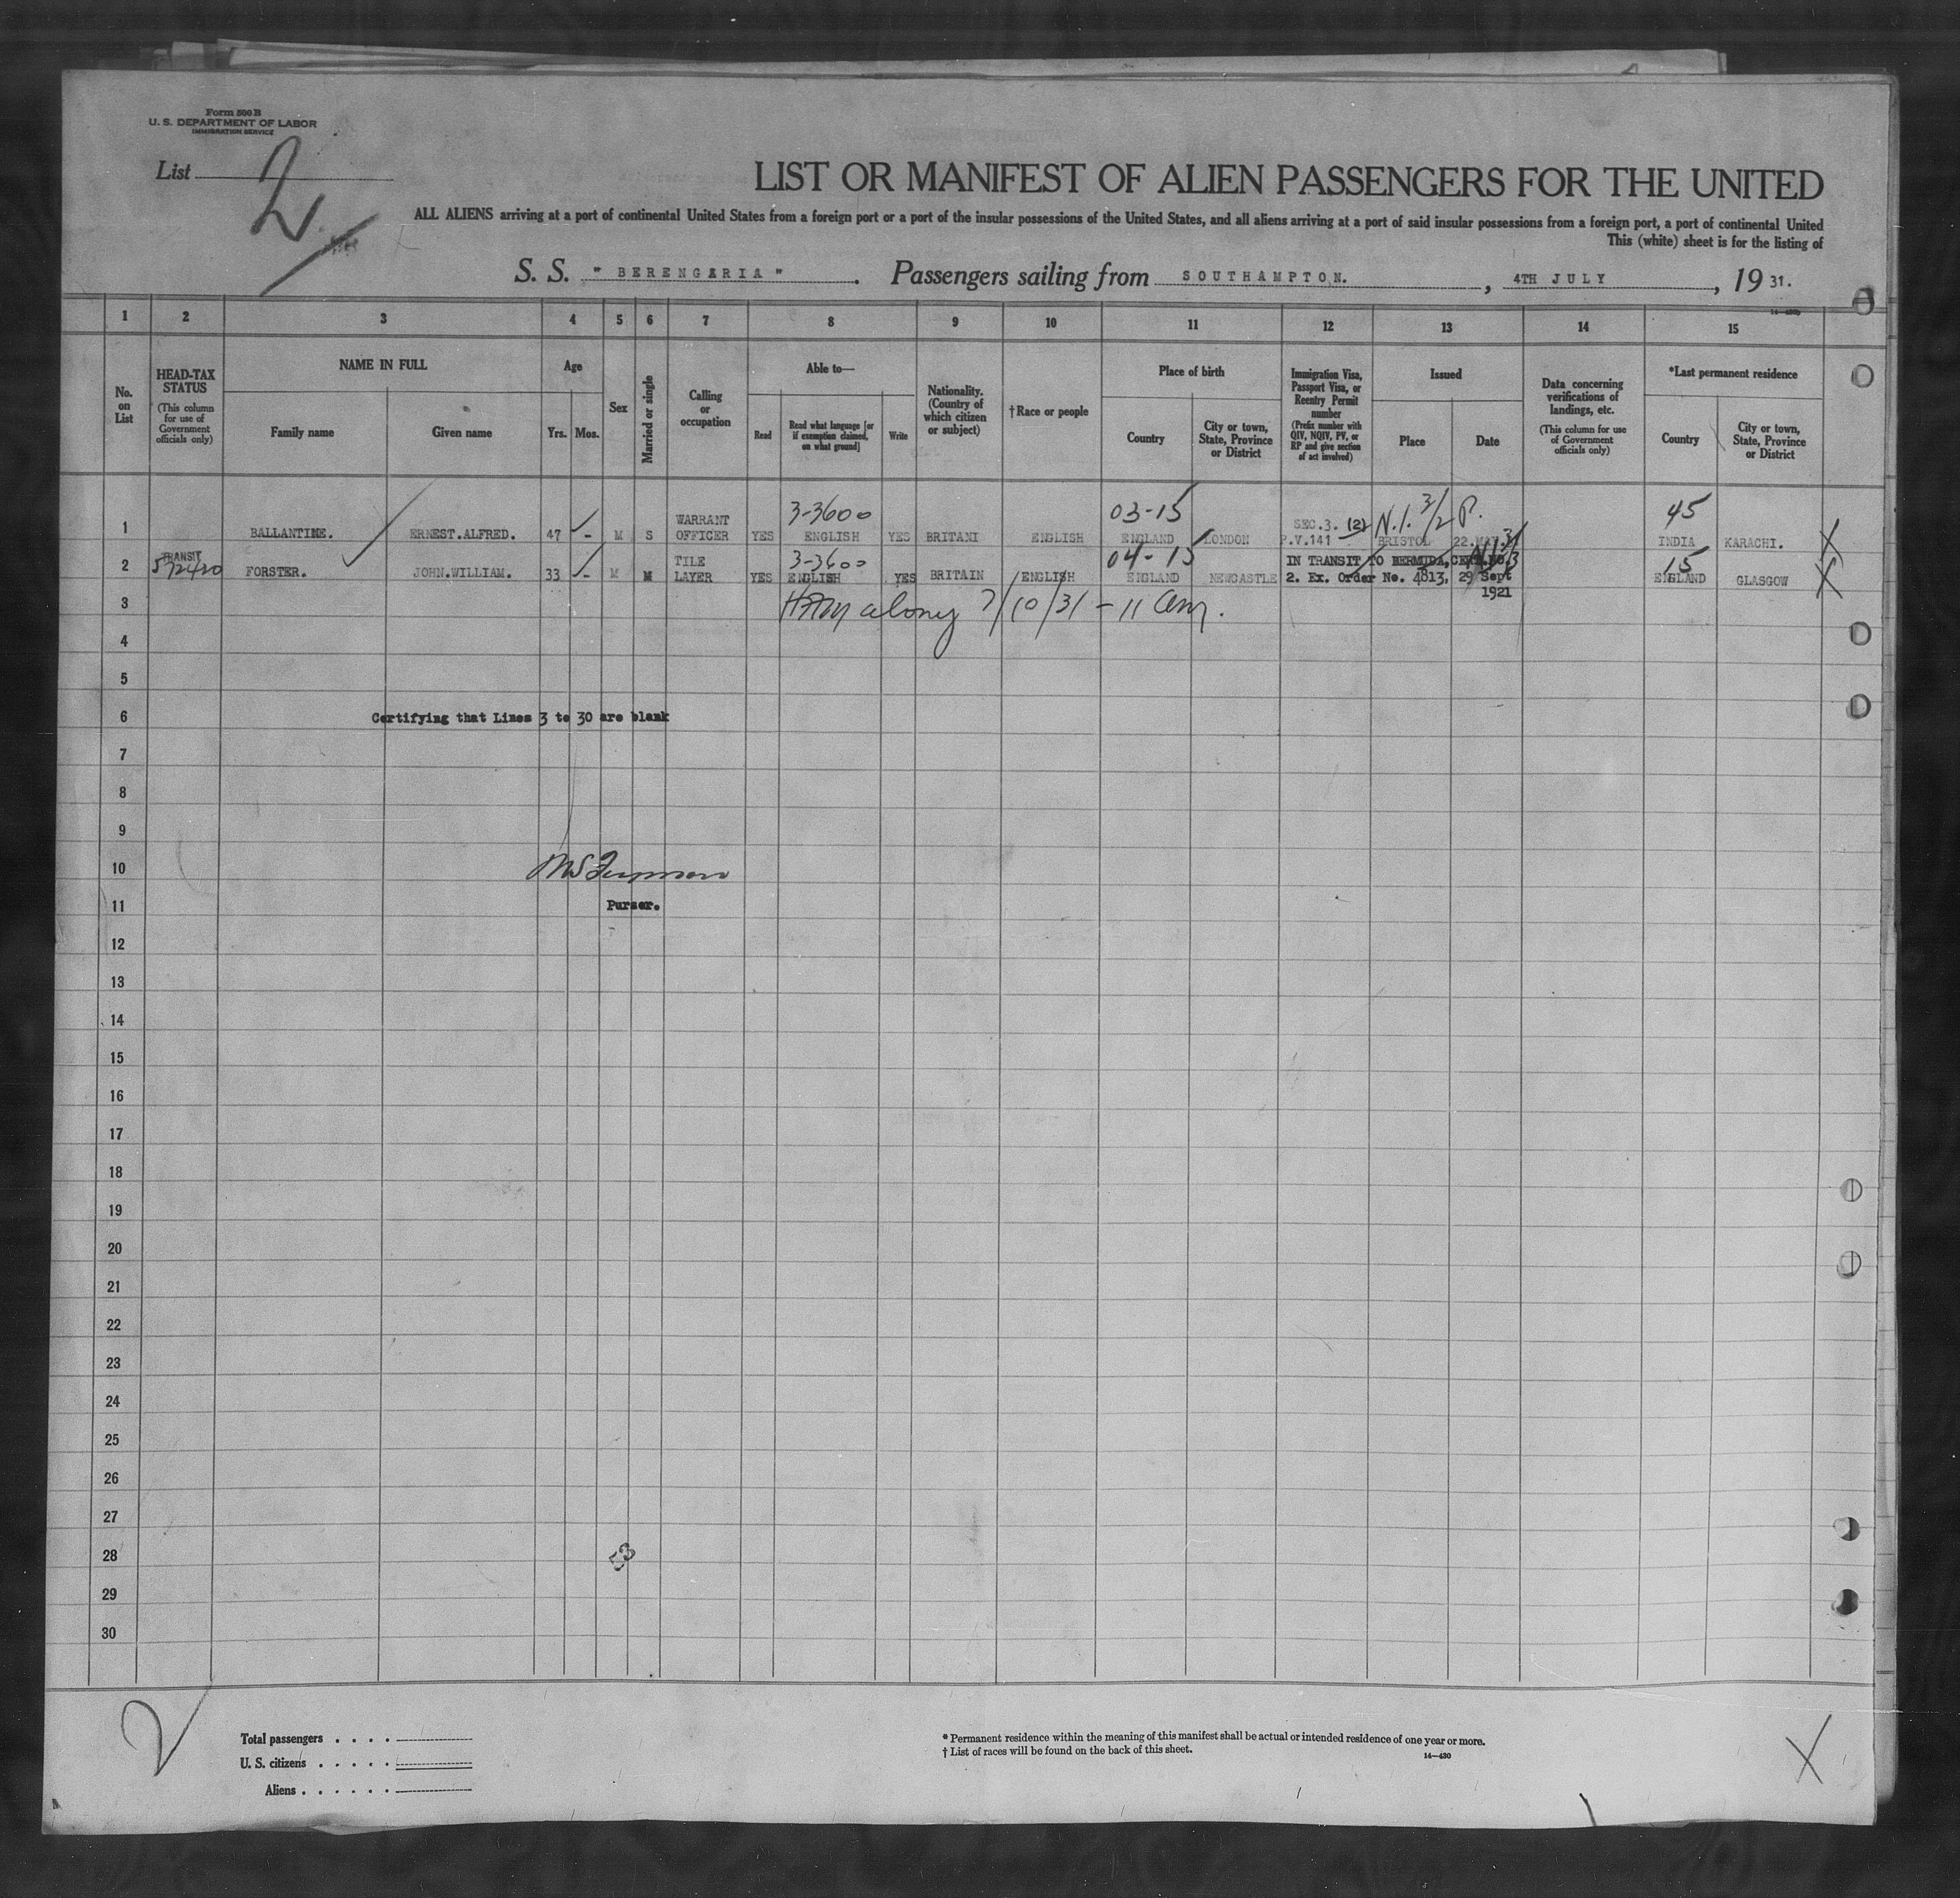 Form 500 B
U. S. DEPARTMENT OF LABOR
IMMIGRATION SERVICE
List 2
LIST OR MANIFEST OF ALIEN PASSENGERS FOR THE UNITED
ALL ALIENS arriving at a port of continental United States from a foreign port or a port of the insular possessions of the United States, and all aliens arriving at a port of said insular possessions from a foreign port, a port of continental United
This (white) sheet is for the listing of
S. S. " BERENGARIA ". Passengers sailing from SOUTHAMPTON. , 4TH JULY , 19 31.
1 2 3 4 5 6 7 8 9 10 11 12 13 14 15
No. on List
HEAD-TAX STATUS
(This column for use of Government officials only)
NAME IN FULL
Family name
Given name
Age
Yrs. Mos.
Sex
Married or single
Calling or occupation
Able to—
Read
Read what language [or if exemption claimed, on what ground]
Write
Nationality. (Country of which citizen or subject)
†Race or people
Place of birth
Country
City or town, State, Province or District
Immigration Visa, Passport Visa, or Reentry Permit number
(Prefix number with QIV, NQIV, PV, or RP and give section of act involved)
Issued
Place
Date
Data concerning verifications of landings, etc.
(This column for use of Government officials only)
*Last permanent residence
Country
City or town, State, Province or District
3-3600 03-15 N.I. 3/2 P. 45
1 BALLANTINE. ERNEST.ALFRED. 47 - M S WARRANT OFFICER YES ENGLISH YES BRITANI ENGLISH ENGLAND LONDON SEC.3. (2) P.V.141 BRISTOL 22.MAY.31 INDIA KARACHI. X
3-3600 04-15 15
2 TRANSIT FORSTER. JOHN.WILLIAM. 33 - M M TILE LAYER YES ENGLISH YES BRITAIN ENGLISH ENGLAND NEWCASTLE IN TRANSIT TO BERMUDA, 2. Ex. Order No. 4813, 29 Sept 1921 ENGLAND GLASGOW X
3 along 7/10/31 - 11 am.
4
5
6 Certifying that Lines 3 to 30 are blank
7
8
9
10
11 Purser.
12
13
14
15
16
17
18
19
20
21
22
23
24
25
26
27
28 53
29
30
2
Total passengers
U. S. citizens
Aliens
* Permanent residence within the meaning of this manifest shall be actual or intended residence of one year or more.
† List of races will be found on the back of this sheet.
14—430
X